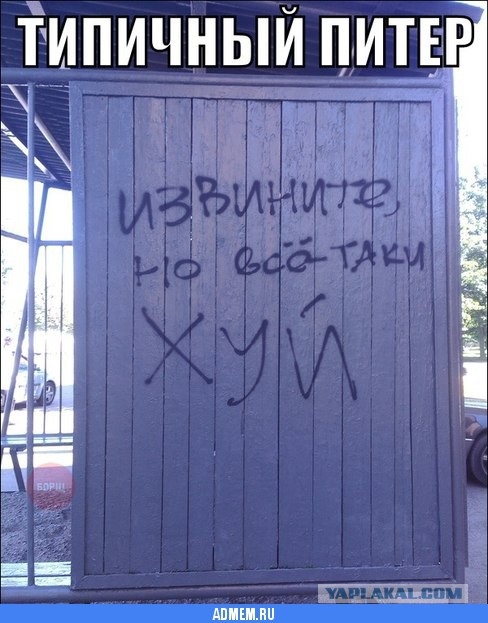 ТИПИЧНЫЙ ПИТЕР
извините,
но всё-таки
хуй
БОРЩ
YAPLAKAL.COM
ADMEM.RU